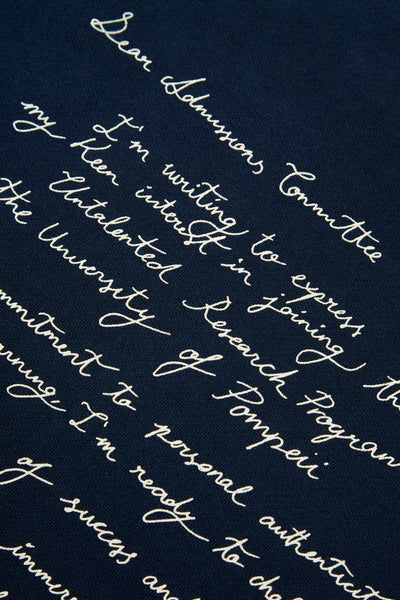 Dear Admissions Committee
I'm writing to express
my Keen interest in joining the
Untalented Research Program
the University of Pompeii
mmitment to personal authenticit
arning, I'm ready to cha
of success and
immer